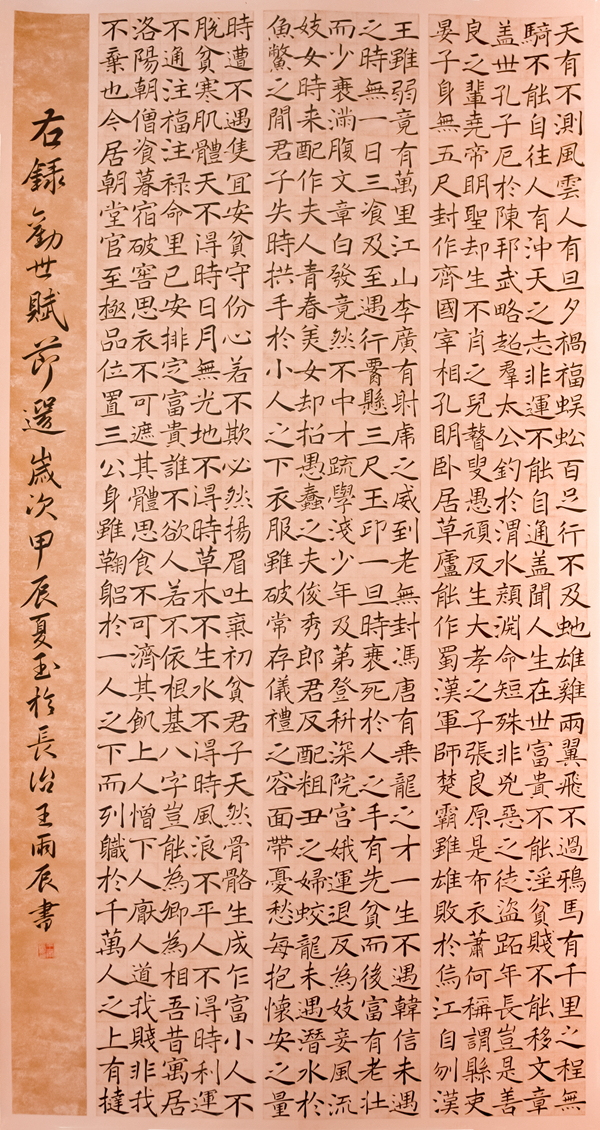 天有不測風雲人有旦夕禍福蜈蚣百足行不及虵雄雞兩翼飛不過鴉馬有千里之程無
騎不能自往人有沖天之志非運不能自通盖聞人生在世富貴不能淫貧賤不能移文章
盖世孔子厄於陳邦武略超羣太公釣於渭水顏淵命短殊非兇惡之徒盜跖年長豈是善
良之輩堯帝明聖却生不肖之兒瞽叟愚頑反生大孝之子張良原是布衣蕭何稱謂縣吏
晏子身無五尺封作齊國宰相孔明卧居草廬能作蜀漢軍師楚霸雖雄敗於烏江自刎漢
王雖弱竟有萬里江山李廣有射虎之威到老無封馮唐有乘龍之才一生不遇韓信未遇
之時無一日三飡及至遇行懸三尺玉印一旦時衰死於人之手有先貧而後富有老壯
而少衰滿腹文章白發竟然不中才疏學淺少年及第登科深院宮娥運退反為妓妾風流
妓女時来配作夫人青春美女却招愚蠢之夫俊秀郎君反配粗丑之婦蛟龍未遇潛水於
魚鱉之間君子失時拱手於小人之下衣服雖破常存儀禮之容面帶憂愁每抱懷安之量
時遭不遇隻宜安貧守份心若不欺必然揚眉吐氣初貧君子天然骨骼生成乍富小人不
脫貧寒肌體天不得時日月無光地不得時草木不生水不得時風浪不平人不得時利運
不通注福注禄命里已安排定富貴誰不欲人若不依根基八字豈能為卿為相吾昔寓居
洛陽朝僧飡暮宿破窖思衣不可遮其體思食不可濟其飢上人憎下人厭人道我賤非我
不棄也今居朝堂官至極品位置三公身雖鞠躬於一人之下而列職於千萬人之上有撻
右録勸世賦節選歲次甲辰夏玉於長治王雨辰書